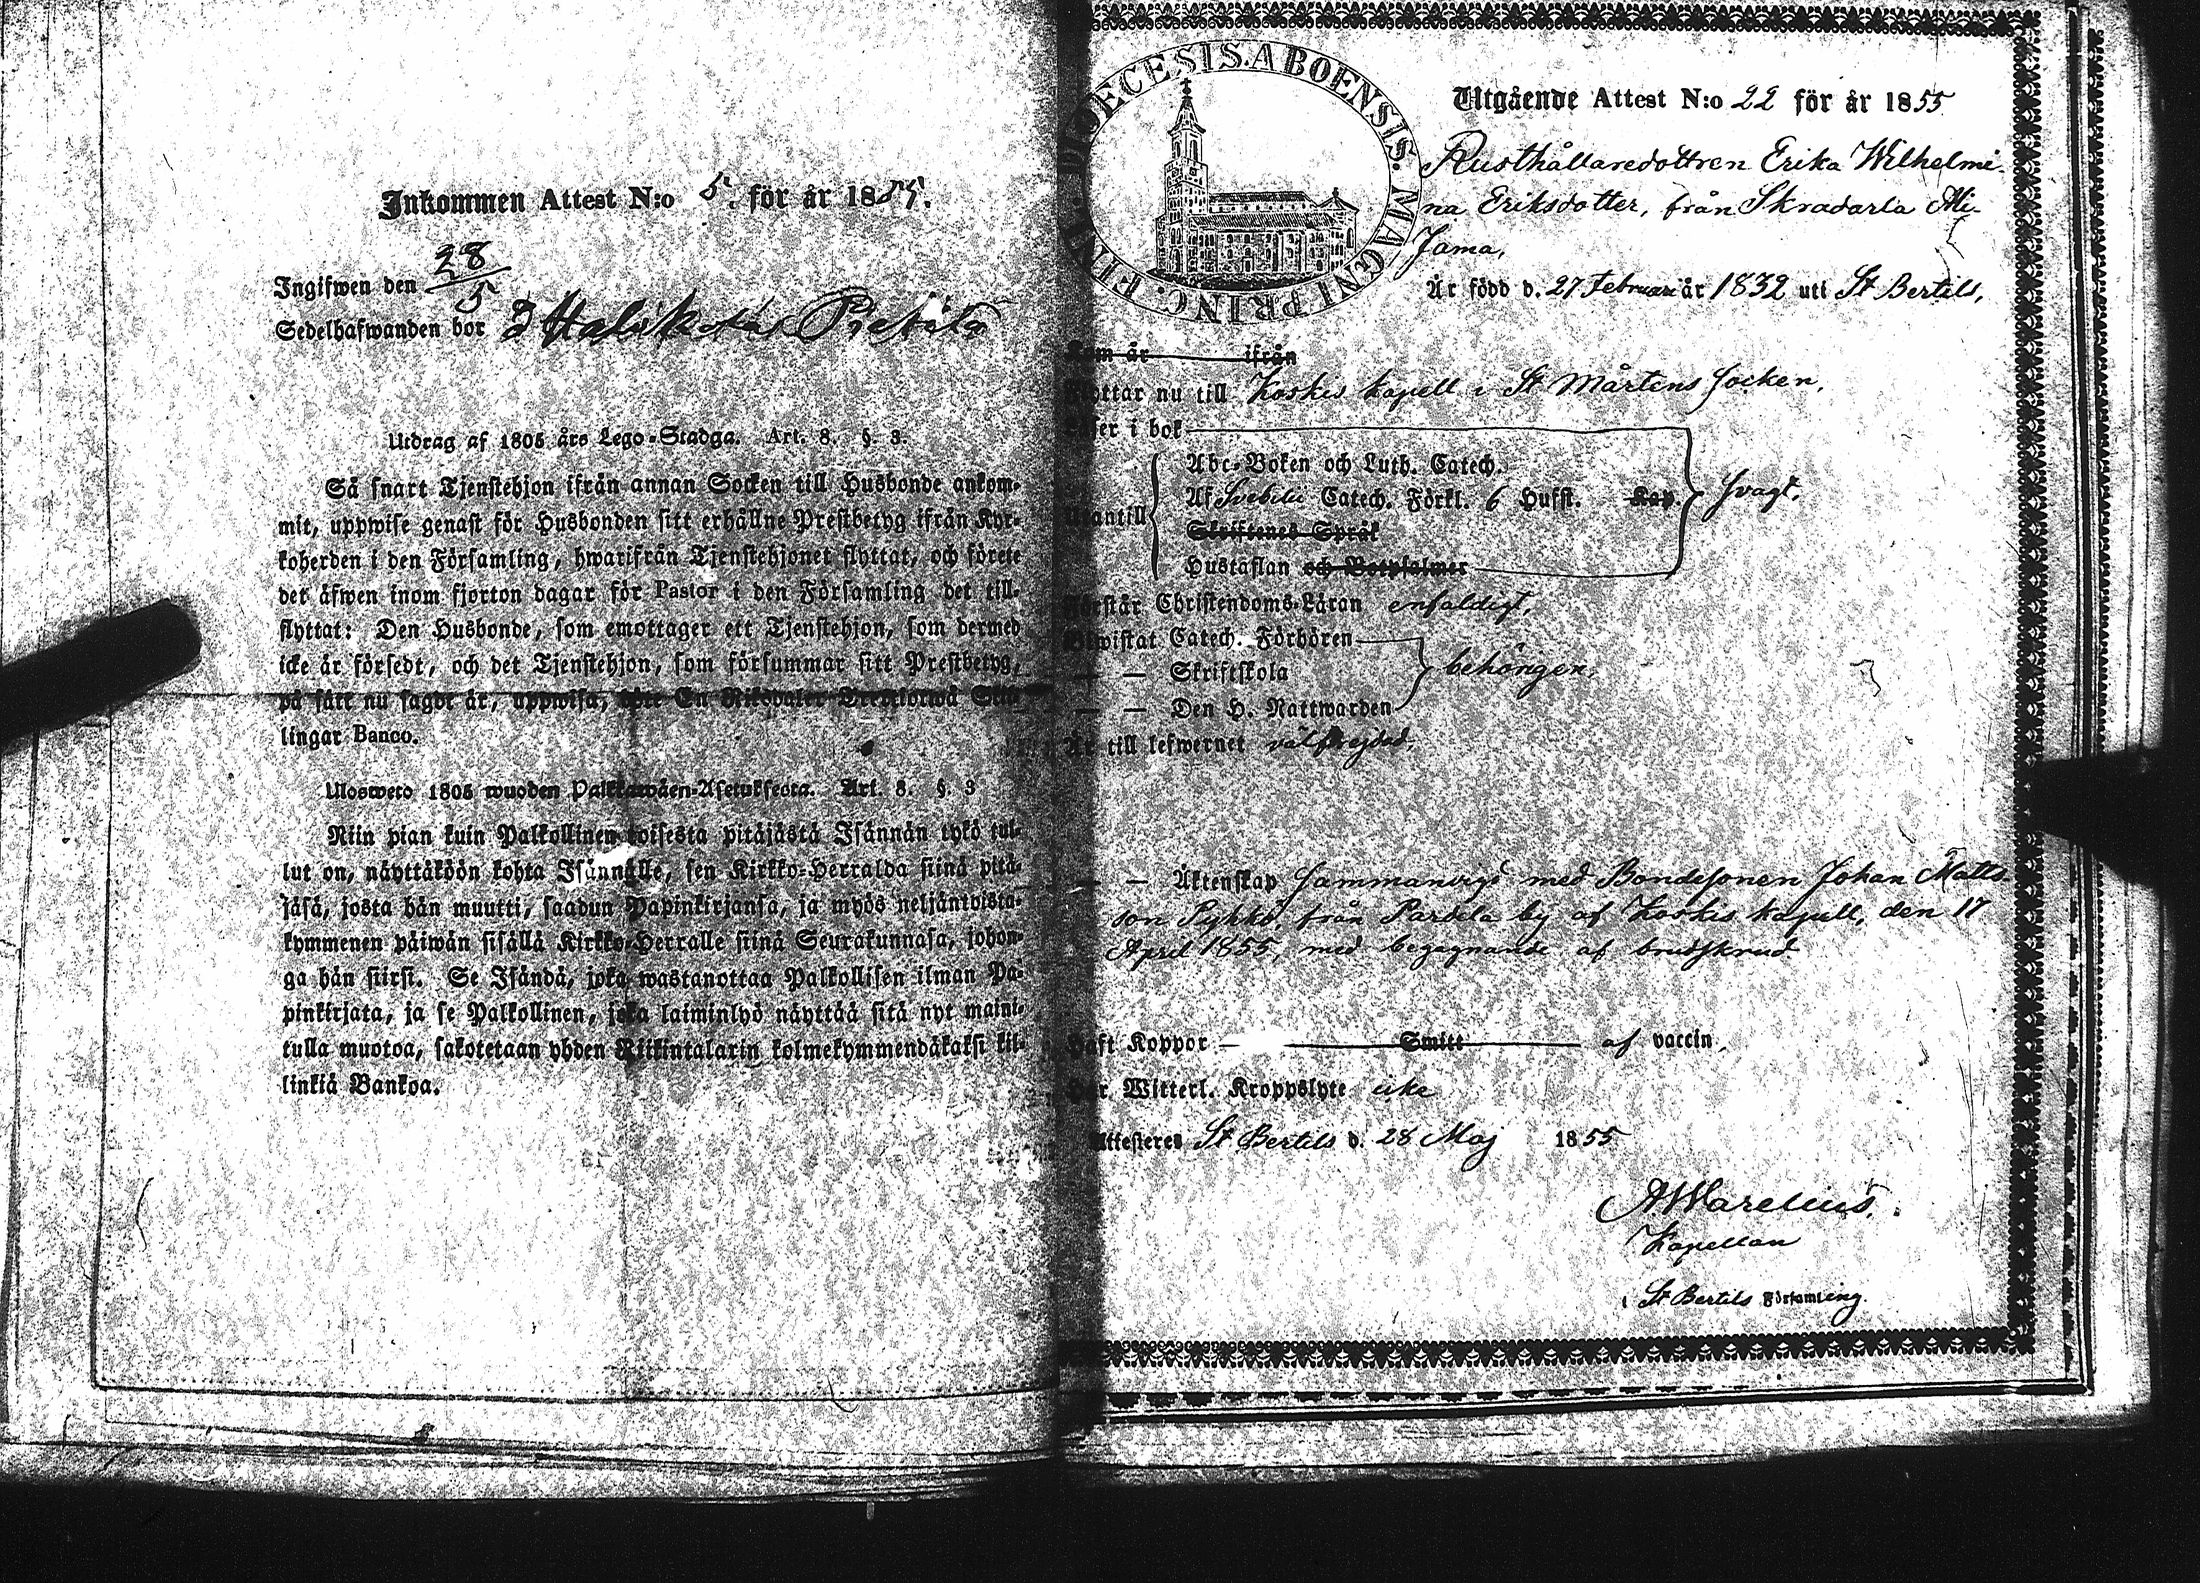 Inkommen Attest N:o 5. för år 1855.
Ingifwen den 28/5
Sedelhafwanden bor I
Utdrag af 1805 års Lego-Stadga. Art. 8. §. 3.
Så snart Tjenstehjon ifrån annan Socken till Husbonde ankom-
mit, uppwise genast för Husbonden sitt erhållne Prestbetyg ifrån Kyr-
koherden i den Församling, hwarifrån Tjenstehjonet flyttat, och förete
det äfwen inom fjorton dagar för Pastor i den Församling det till-
flyttat: Den Husbonde, som emottager ett Tjenstehjon, som dermed
icke är försedt, och det Tjenstehjon, som försummar sitt Prestbetyg,
på sätt nu sagdt är, uppwisa, böte En Riksdaler Trettiotwå Skil-
lingar Banco.
Ulosweto 1805 wuoden Palkkawäen-Asetuksesta. Art. 8. §. 3
Niin pian kuin Palkollinen toisesta pitäjästä Isännän tykö tul-
lut on, näyttäköön kohta Isännälle, sen Kirkko-Herralda siinä pitä-
jäsä, josta hän muutti, saadun Papinkirjansa, ja myös neljäntoista-
kymmenen päiwän sisällä Kirkko-Herralle siinä Seurakunnasa, johon-
ga hän siirsi. Se Isändä, joka wastanottaa Palkollisen ilman Pa-
pinkirjata, ja se Palkollinen, joka laiminlyö näyttää sitä nyt maini-
tulla muotoa, sakotetaan yhden Riikintalarin kolmekymmendäkaksi kil-
linkiä Bankoa.
DIOECESIS. ABOENSIS. MAGNI PRINC. FINL.
Utgående Attest N:o 22 för år 1855
Rusthållaredottren Erika Wilhelmi-
na Eriksdotter, från Skradarla Ali-
Jama,
Är född d. 27 Februari år 1832 uti St Bertils,
Kom år ifrån
Flyttar nu till Koskis kapell i St Mårtens Socken.
Läser i bok
Abc-Boken och Luth. Catech.
Utantill Af Svebilii Catech. Förkl. 6 Hufst. Kap. svagt.
Skriftenes Språk
Hustaflan och Botpsalmer
Förstår Christendoms-Läran enfaldigt,
Bewistat Catech. Förhören
— — Skriftskola behörigen,
— — Den H. Nattwarden
Är till lefwernet välfrejdad,
— — Äktenskap Sammanvigd med Bondesonen Johan Matts
son Pyhkö, från Pardela by af Koskis kapell, den 17
April 1855, med begagnande af brudskrud
Haft Koppor Smitt af vaccin,
Har Witterl. Kroppslyte icke
Attesteres St Bertils d. 28 Maj 1855
A Warelius.
Kapellan
i St Bertils Församling.